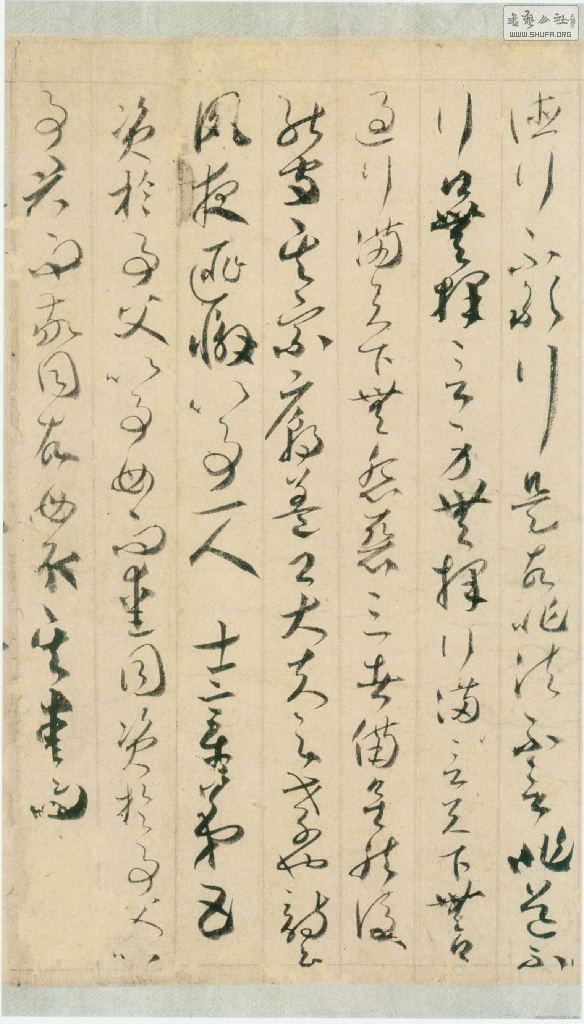 德行不敢行是故非法不言非道不
行口無擇言身無擇行滿言天下無口
過行滿天下無怨惡三者備矣然後
能守其宗廟蓋卿大夫之孝也詩云
夙夜匪懈以事一人 士章第五
資於事父以事母而愛同資於事父以
事君而敬同故母取其愛而
書藝公社
WWW.SHUFA.ORG